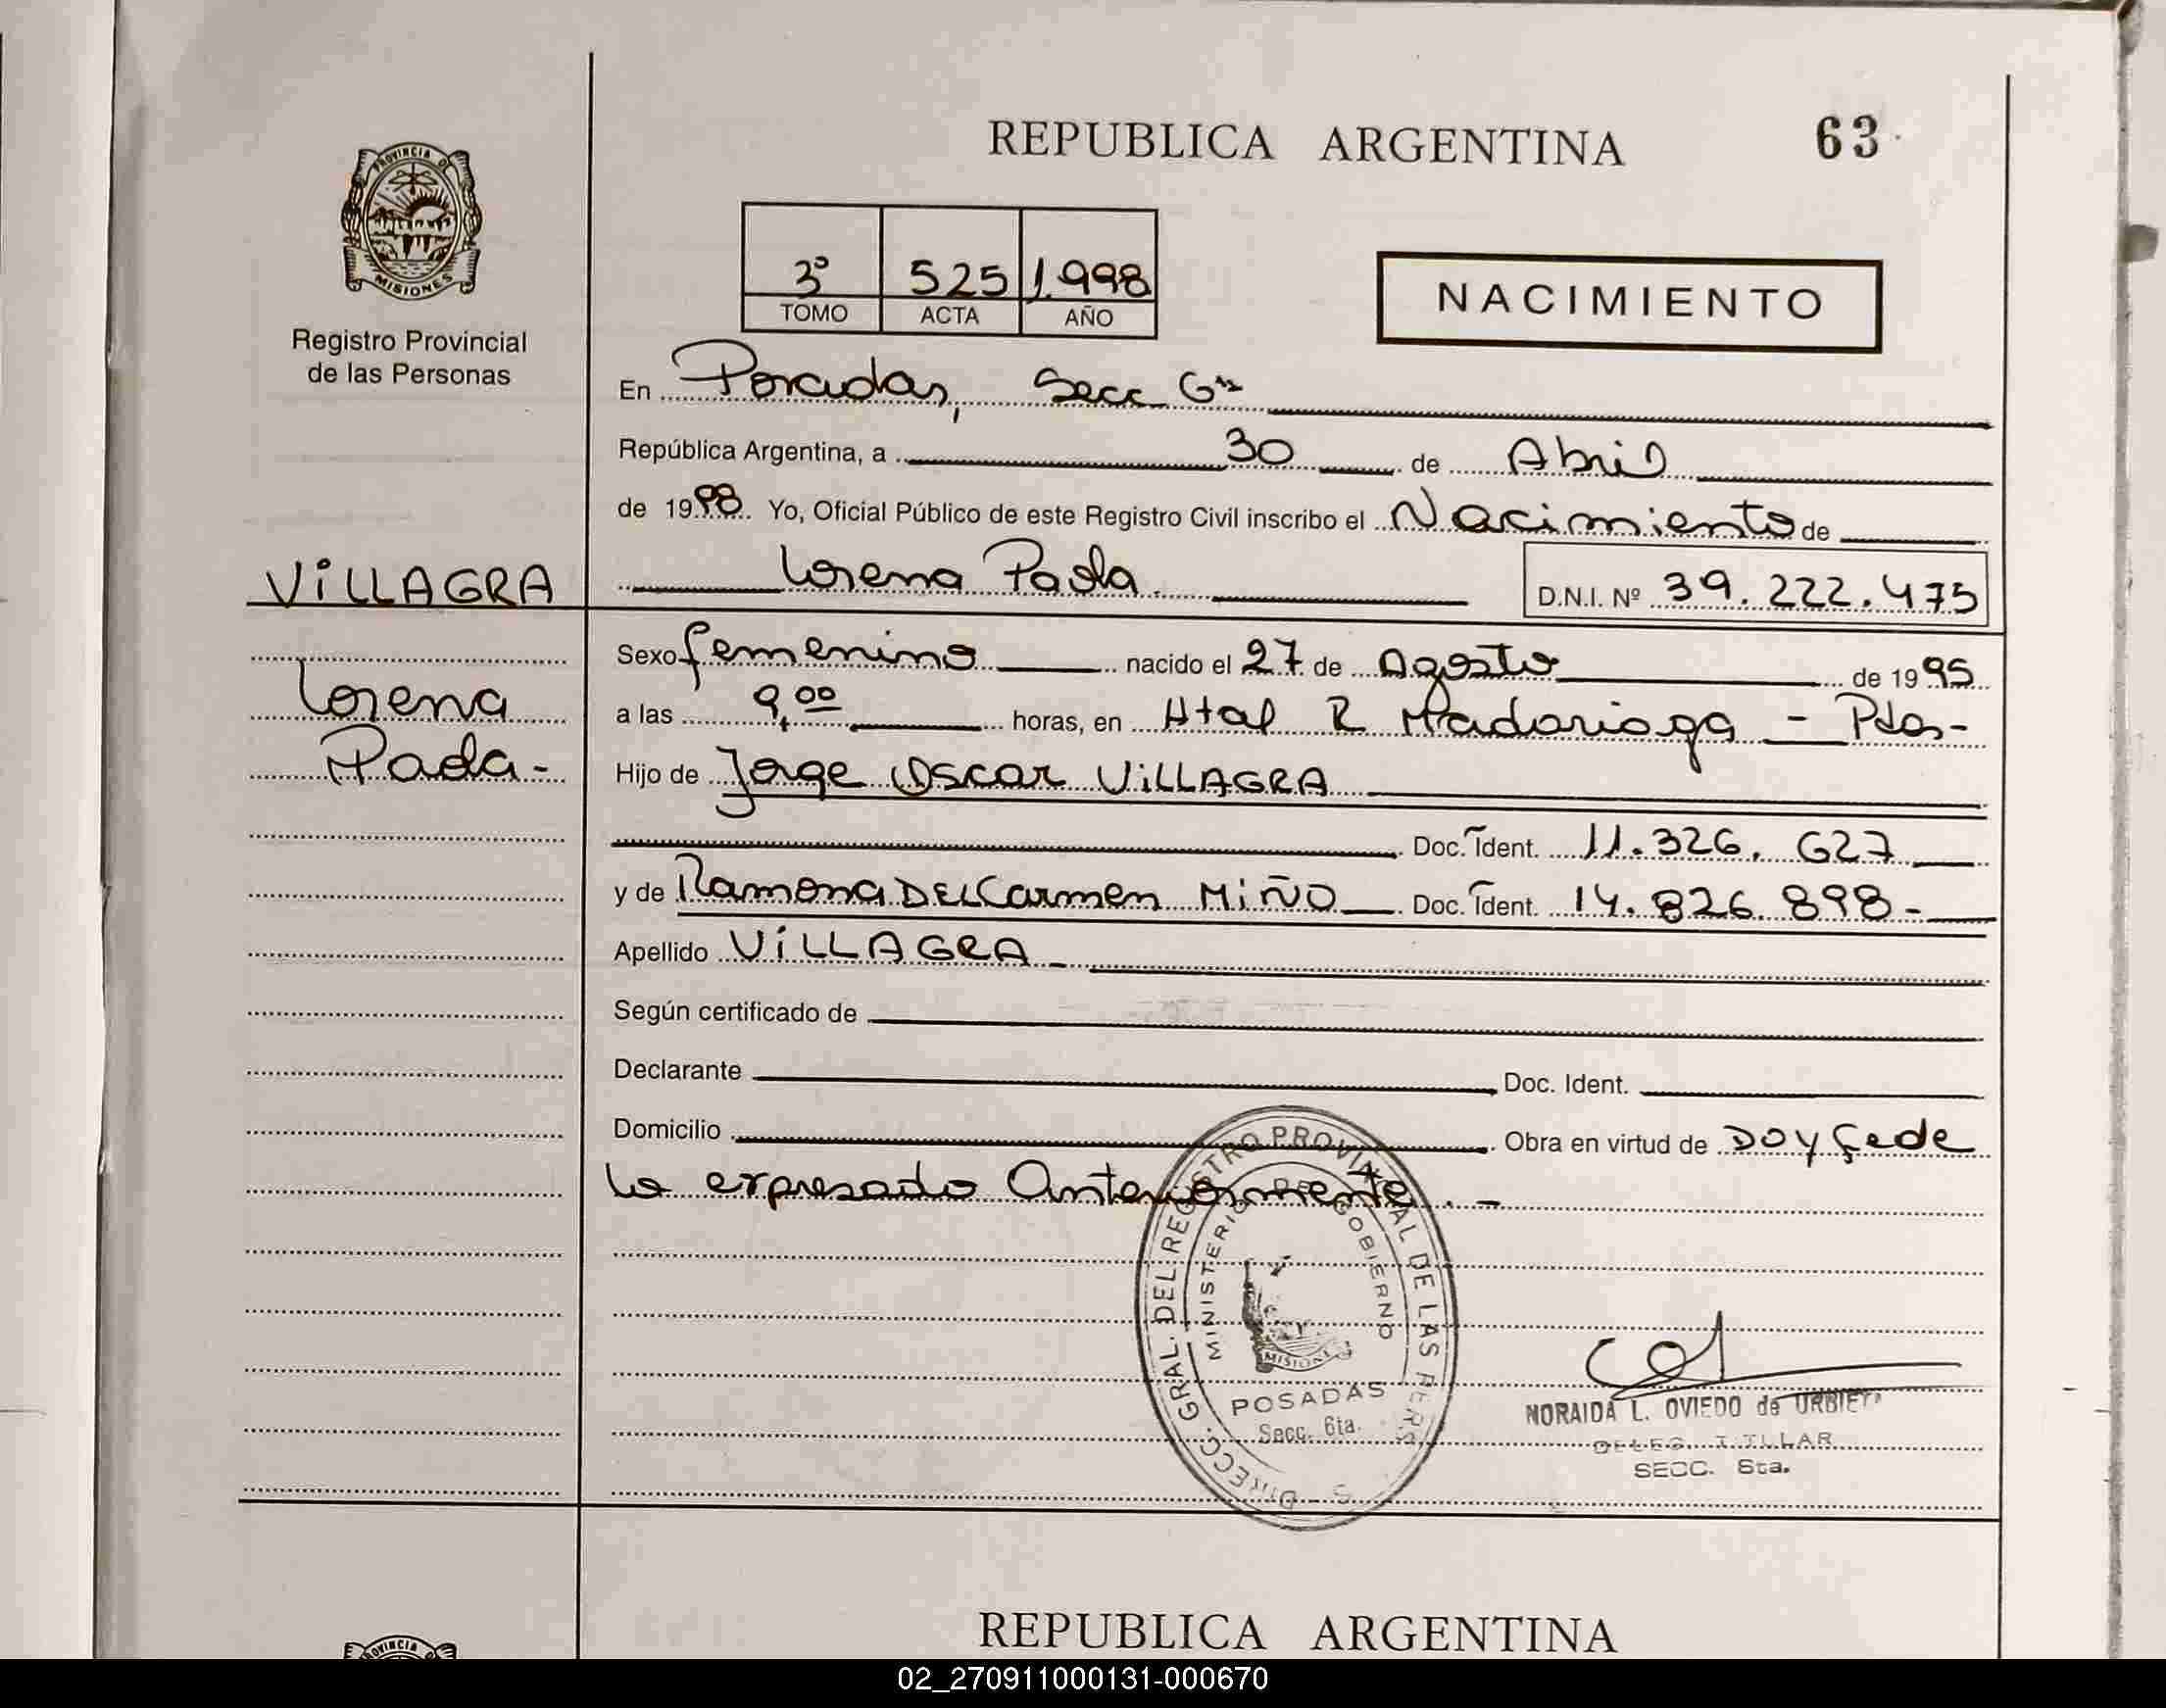 REPUBLICA ARGENTINA
63
PROVINCIA D
MISIONES
Registro Provincial
de las Personas
3º 525 1.998
TOMO ACTA AÑO
NACIMIENTO
En Posadas, Secc 6ta
República Argentina, a 30 de Abril
de 1998. Yo, Oficial Público de este Registro Civil inscribo el Nacimiento de
VILLAGRA
Lorena Paola
D.N.I. Nº 39.222.475
Sexo femenino nacido el 27 de Agosto de 1995
Lorena
a las 9,00 horas, en Htal R Madariaga - Pdas-
Paola-
Hijo de Jorge Oscar VILLAGRA
Doc. Ident. 11.326.627
y de Ramona DEL Carmen MIÑO Doc. Ident. 14.826.898-
Apellido VILLAGRA
Según certificado de
Declarante Doc. Ident.
Domicilio Obra en virtud de DOY fede
lo expresado Anteriormente.-
DIRECC. GRAL. DEL REGISTRO PROVINCIAL DE LAS PERS
MINISTERIO DE GOBIERNO
MISIONES
POSADAS
Secc. 6ta.
NORAIDA L. OVIEDO de URBIETA
DELEG. TITULAR
SECC. 6ta.
REPUBLICA ARGENTINA
OVINCIA
02_270911000131-000670